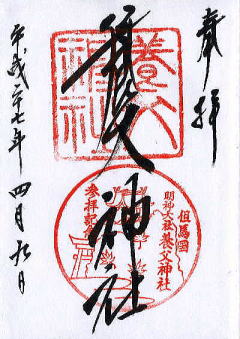 奉拝
養父神社
養父神社
但馬國
明神大社養父神社
参拝記念
平成二十七年四月九日